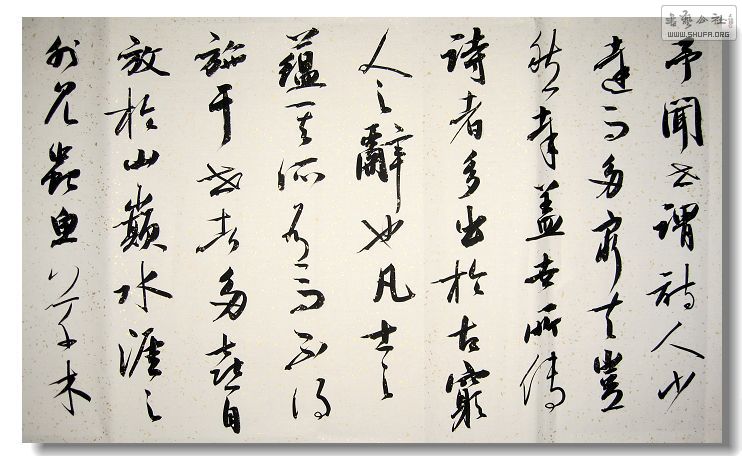 予聞世謂詩人少
達而多窮夫豈
然哉蓋世所傳
詩者多出於古窮
人之辭也凡士之
蘊其所有而不得
施于世者多喜自
放於山巔水涯之
外見蟲魚草木
书艺公社
WWW.SHUFA.ORG